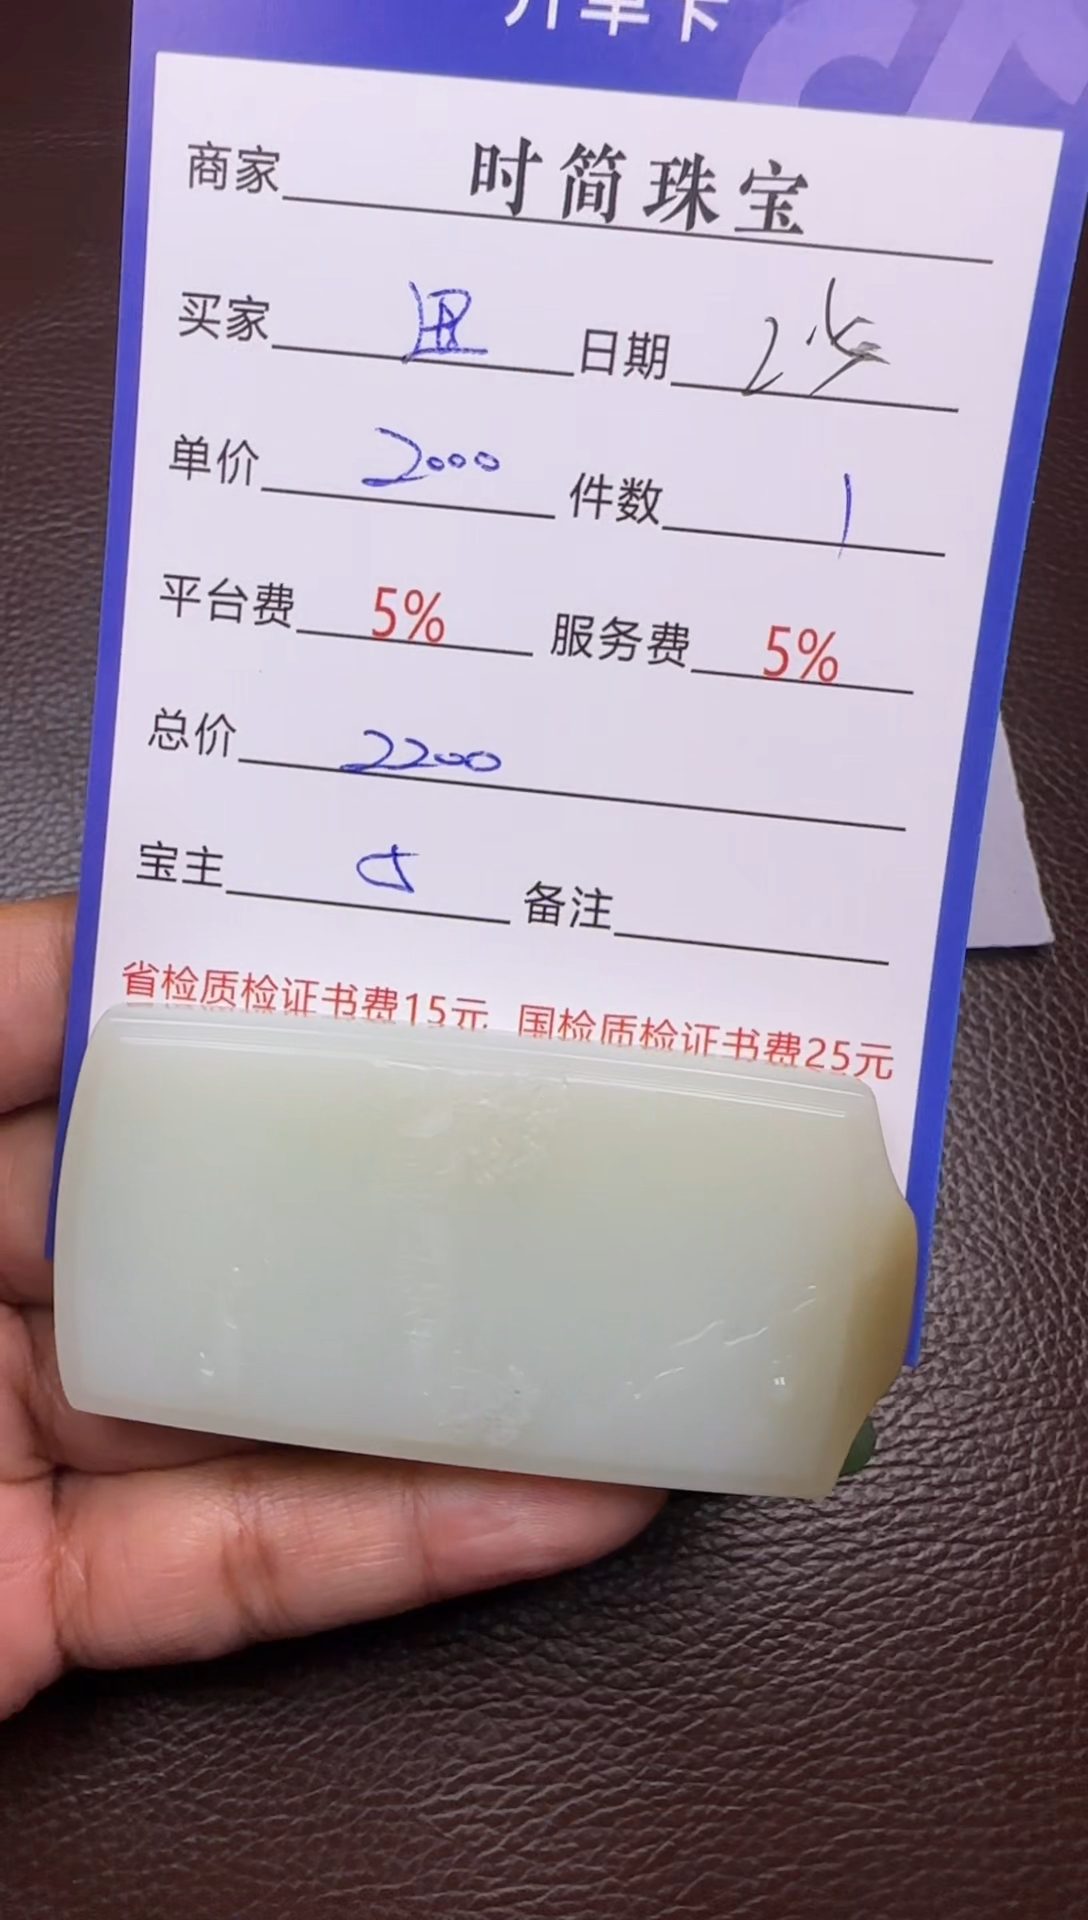 开单卡
商家 时简珠宝
买家 日期
单价 2000 件数 1
平台费 5% 服务费 5%
总价 2200
宝主 备注
省检质检证书费15元 国检质检证书费25元